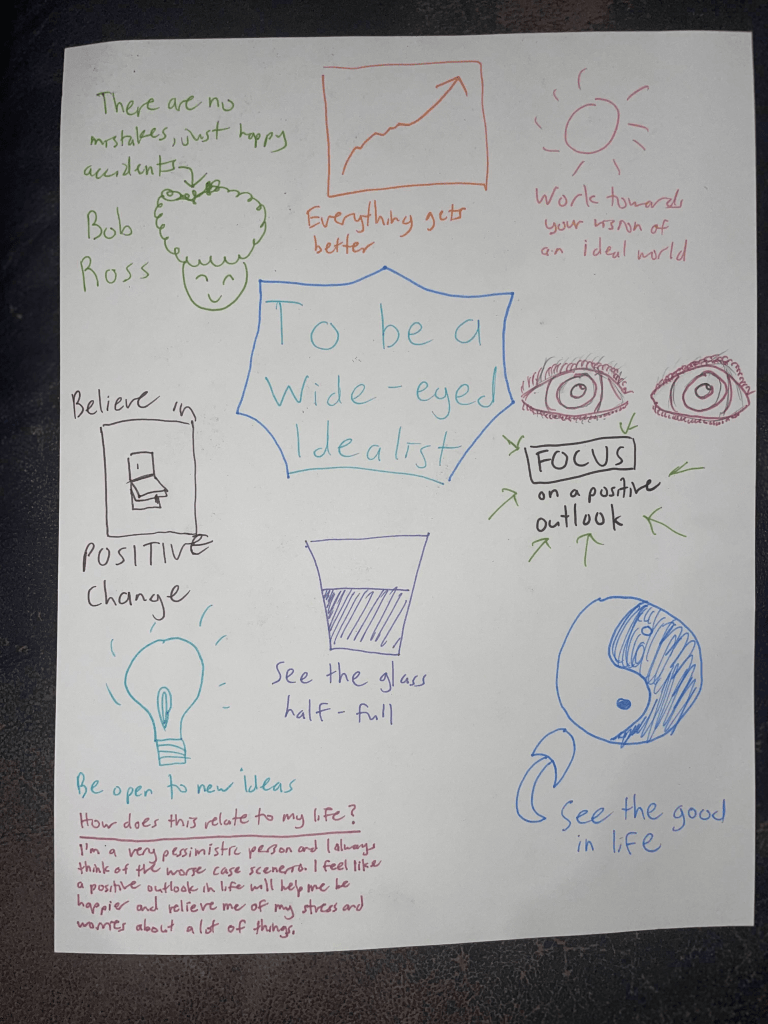 There are no
mistakes, just happy
accidents
Bob
Ross
Everything gets
better
Work towards
your vision of
an ideal world
To be a
Wide-eyed
Idealist
Believe in
POSITIVE
Change
FOCUS
on a positive
outlook
See the glass
half-full
Be open to new ideas
See the good
in life
How does this relate to my life?
I'm a very pessimistic person and I always
think of the worse case scenerro. I feel like
a positive outlook in life will help me be
happier and relieve me of my stress and
worries about a lot of things.